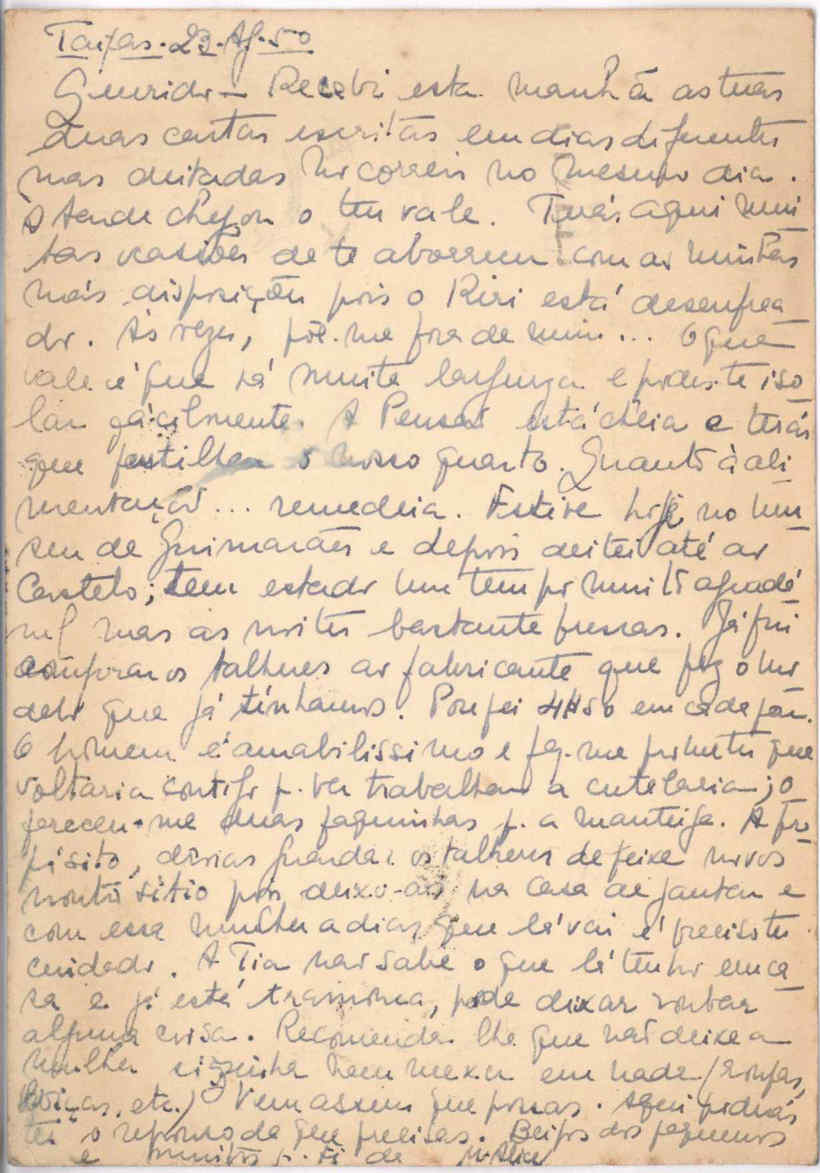 Taipas. 23. Ag. 50
Querido – Recebi esta manhã as tuas
duas cartas escritas em dias diferentes
mas deitadas no correio no mesmo dia.
À tarde chegou o teu vale. Terás aqui mui
tas ocasiões de te aborrecer com as minhas
más disposições pois o Kiri está desenfrea
do. Às vezes, põe-me fora de mim... O que
vale é que há muita largueza e podes-te iso
lar facilmente. A Pensão está cheia e terás
que partilhar o nosso quarto. Quanto à ali
mentação... remedeia. Estive hoje no Mu
seu de Guimarães e depois deitei até ao
Castelo; tem estado um tempo muito agradá
vel mas as noites bastante frescas. Já fui
comprar os talheres ao fabricante que fez o mo
delo que já tínhamos. Poupei 4$50 em cada par.
O homem é amabilíssimo e fez-me prometer que
voltaria contigo p. ver trabalhar a cutelaria; o
fereceu-me duas faquinhas p. a manteiga. A pro
pósito, devias guardar os talheres de peixe novos
noutro sítio pois deixo-os na casa de jantar e
com essa mulher a dias que lá vai é preciso ter
cuidado. A Tia não sabe o que lá tenho em ca
sa e já está tramonca, pode deixar roubar
alguma coisa. Recomenda-lhe que não deixe a
mulher sozinha nem mexer em nada (roupas,
loiças, etc.) Vem assim que possas. Aqui poderás
ter o repouso de que precisas. Beijos dos pequenos
e muitos p. ti da